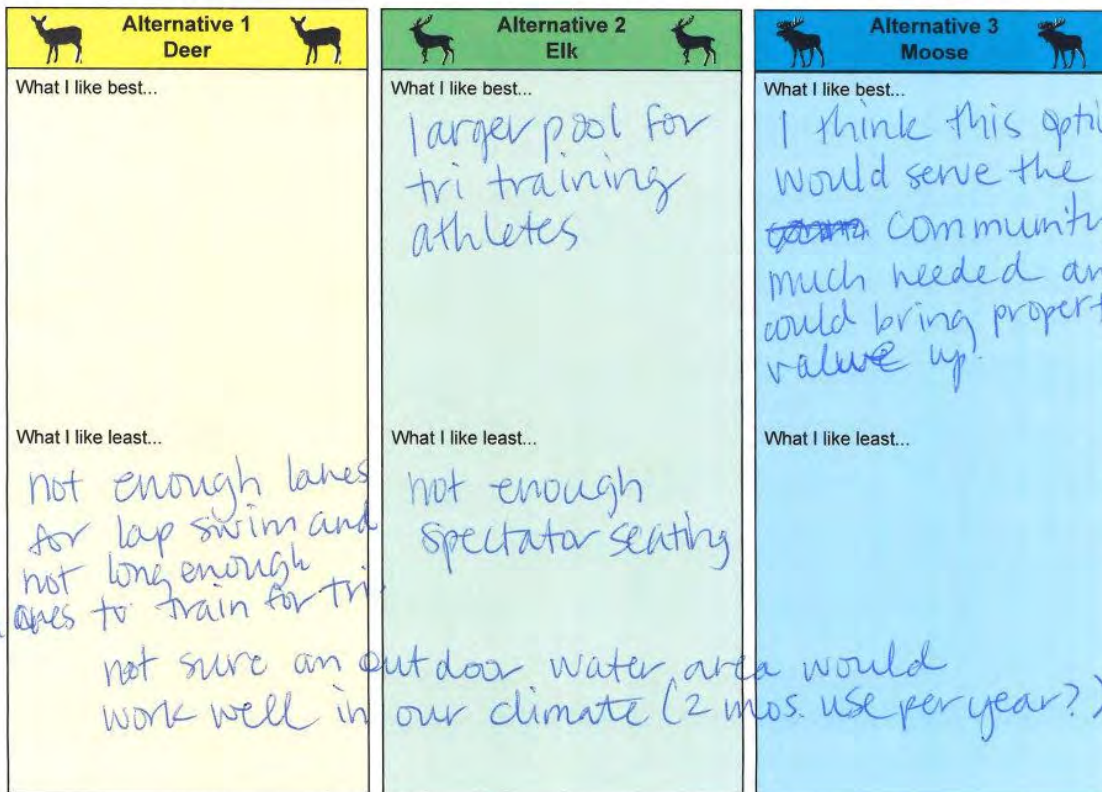 Alternative 1
Deer
What I like best...
What I like least...
not enough lanes
for lap swim and
not long enough
to train for tri.
Alternative 2
Elk
What I like best...
larger pool for
tri training
athletes
What I like least...
not enough
spectator seating
Alternative 3
Moose
What I like best...
I think this opti
would serve the
community
much needed an
could bring propert
value up!
What I like least...
not sure an outdoor water area would
work well in our climate (2 mos. use per year?)